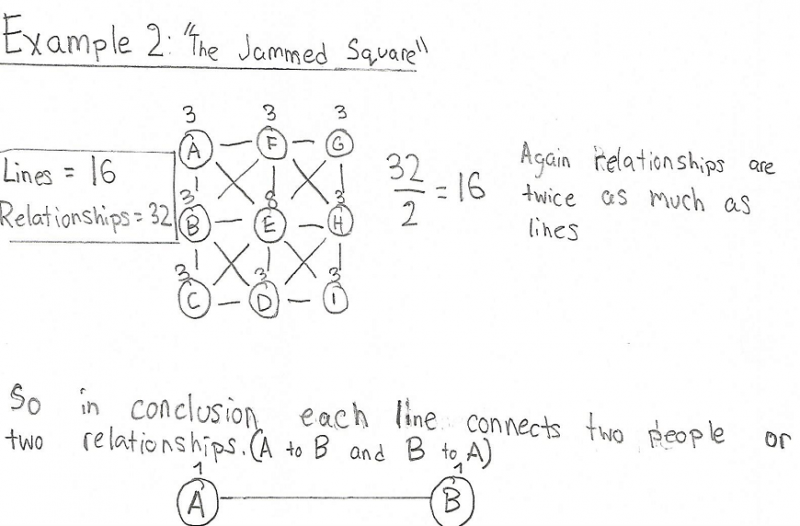 Example 2: "The Jammed Square"
3 3 3
A F G
Lines = 16
Relationships = 32
3 8 3
B E H
3 3 3
C D I
32/2 = 16
Again Relationships are
twice as much as
lines
So in conclusion each line connects two people or
two relationships. (A to B and B to A)
1 1
A B